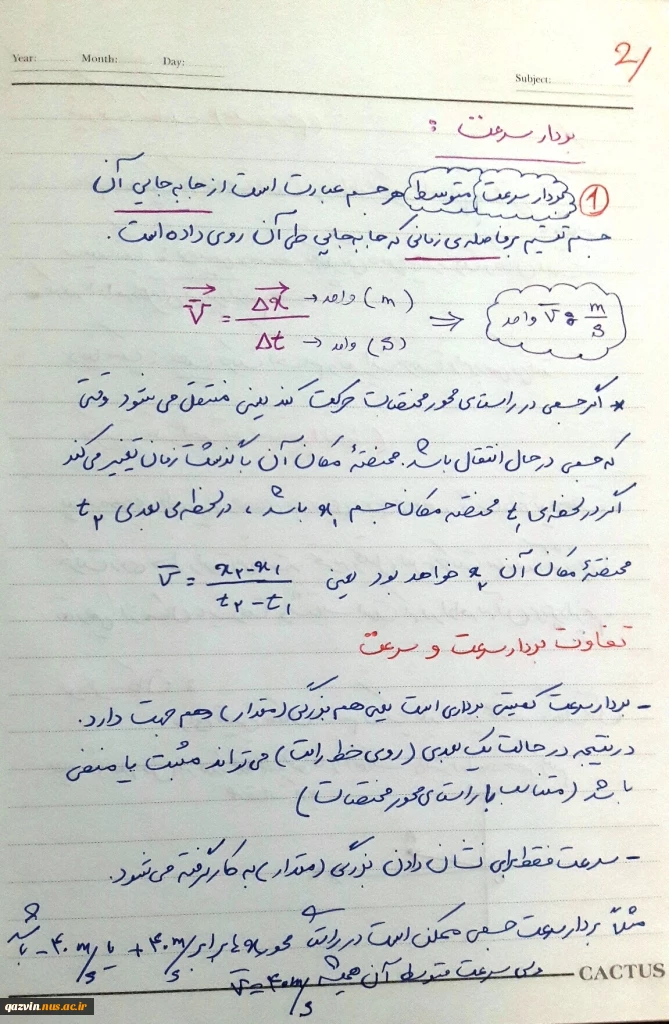 2/
Year: Month: Day:
Subject:
بردار سرعت :
① بردار سرعت متوسط هر جسم عبارت است از جابه‌جایی آن
جسم تقسیم بر فاصله‌ی زمانی که جابه‌جایی طی آن روی داده است.
V̄ = Δx / Δt واحد (m) واحد (s) ⇒ واحد V̄ : m/s
* اگر جسمی در راستای محور مختصات حرکت کند یعنی منتقل می‌شود وقتی
که جسمی در حال انتقال باشد. مختصهٔ مکان آن با گذشت زمان تغییر می‌کند
اگر در لحظه‌ای t₁ مختصه مکان جسم x₁ باشد، در لحظه‌ی بعدی t₂
مختصهٔ مکان آن x₂ خواهد بود یعنی V̄ = x₂-x₁ / t₂-t₁
تفاوت بردار سرعت و سرعت
- بردار سرعت کمیتی برداری است یعنی هم بزرگی (مقدار) و هم جهت دارد.
در نتیجه در حالت یک بعدی (روی خط راست) می‌تواند مثبت یا منفی
باشد (متناسب با راستای محور مختصات)
- سرعت فقط برای نشان دادن بزرگی (مقدار) به کار گرفته می‌شود.
مثلاً بردار سرعت جسمی ممکن است در راستای محور xها برابر +۴۰ m/s یا -۴۰ m/s باشد
ولی سرعت متوسط آن همیشه V̄=۴۰ m/s
CACTUS
qazvin.nus.ac.ir